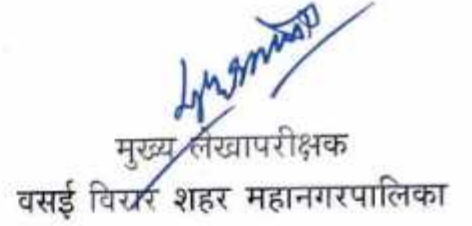 मुख्य लेखापरीक्षक
वसई विरार शहर महानगरपालिका